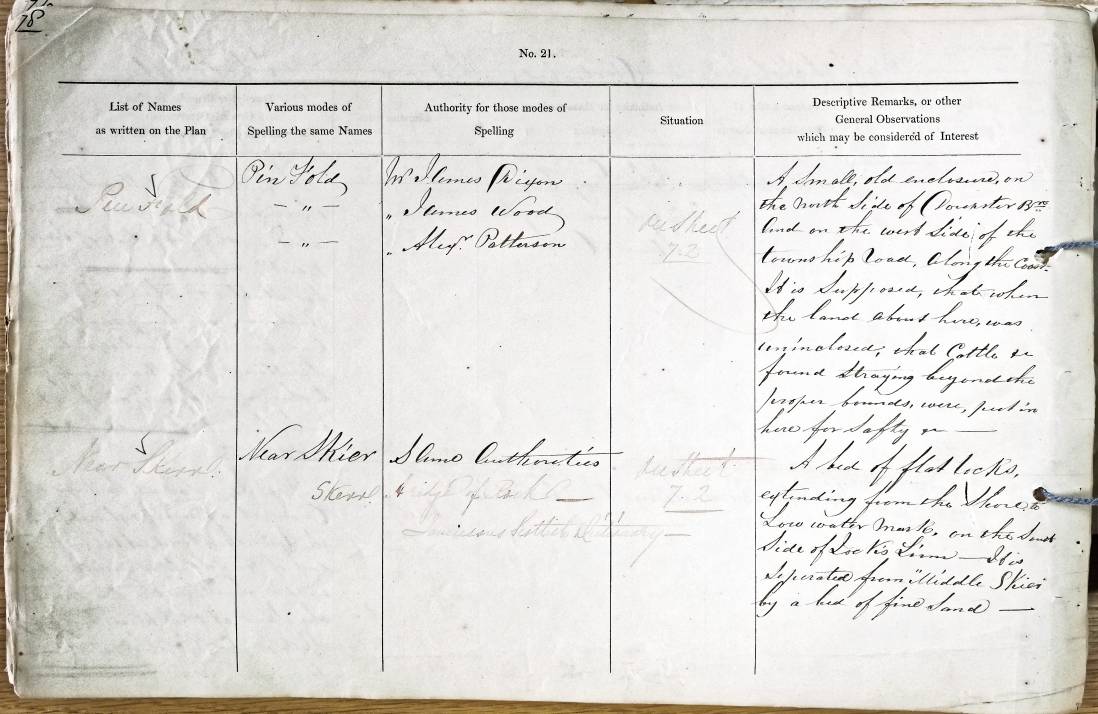 78
No. 21.
List of Names
as written on the Plan
Various modes of
Spelling the same Names
Authority for those modes of
Spelling
Situation
Descriptive Remarks, or other
General Observations
which may be considered of Interest
Pin Fold
Pin Fold
— " —
— " —
Mr James Dixon
" James Wood
" Alexr. Patterson
on Sheet
7.2
A Small, old enclosure, on
the North Side of Dowster Brae
and on the west Side of the
township Road, along the Coast.
It is Supposed, that when
the land about here, was
uninclosed, that Cattle &c
found Straying beyond the
proper bounds, were, put in
here for Safty &c —
Near Skerr
Near Skier
Skerr
Same Authorities
A ridge of Rock —
Jamiesons Scottish Dictionary —
on Sheet
7.2
A bed of flat locks,
extending from the Shore to
Low water Mark, on the South
Side of Linn — It is
Seperated from "Middle Skier
by a bed of fine Sand —